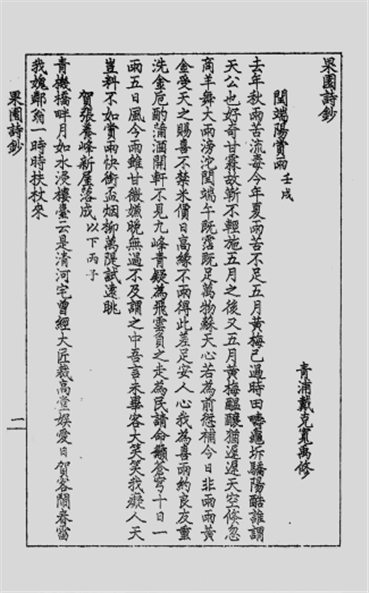 果園詩鈔
青浦戴克寬禹修
閏端陽賞雨壬戌
去年秋雨苦流毒今年夏雨苦不足五月黃梅已過時田疇龜坼驕陽酷誰謂
天公也好奇甘霖故靳不輕施五月之後又五月黃梅醞釀猶遲遲天空倏忽
商羊舞大雨滂沱閏端午既霑既足萬物蘇天心若為前愆補今日非雨雨黃
金受天之賜喜不禁米價日高緣不雨得此差足安人心我為喜雨約良友重
洗金卮酌蒲酒開軒不見九峰青疑為飛雲負之走為民請命籲蒼穹十日一
雨五日風今雨雖甘微嫌晚無過不及謂之中吾言未畢客大笑笑我癡人天
豈料不如賞雨快銜盃烟柳萬隄試遠眺
賀張春峰新屋落成以下丙子
青機橋畔月如水浸樓臺云是清河宅曾經大匠裁高堂娛愛日賀客鬧春雷
我媿鄰翁一時時扶杖來
果園詩鈔
一